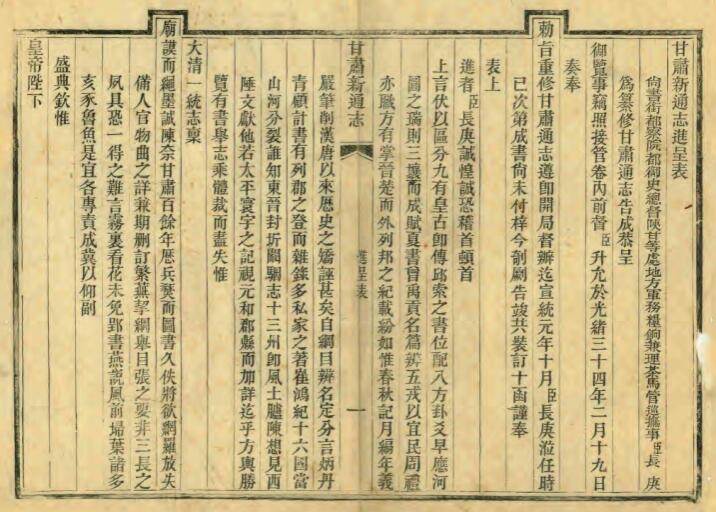 甘肅新通志進呈表
尙書銜都察院都御史總督陝甘等處地方軍務糧餉兼理茶馬管巡撫事臣長庚
爲纂修甘肅通志告成恭呈
御覽事竊照接管卷內前督臣升允於光緒三十四年二月十九日
奏奉
勅旨重修甘肅通志遵卽開局督辦迄宣統元年十月臣長庚涖任時
已次第成書尙未付梓今剞劂告竣共裝訂十函謹奉
表上
進者臣長庚誠惶誠恐稽首頓首
上言伏以區分九有皇古卽傳邱索之書位配八方卦爻早應河
圖之瑞則三壤而成賦夏書曾禹貢名篇辨五戎以宜民周禮
亦職方有掌晉楚而外列邦之紀載紛如惟春秋記月編年義
甘肅新通志
進呈表
一
嚴筆削漢唐以來歷史之矯誣甚矣自綱目辨名定分言炳丹
靑顧計書有列郡之登而雜錄多私家之著崔鴻紀十六國當
山河分裂誰知東晉封圻闞駰志十三州卽風土臚陳想見西
陲文獻他若太平寰宇之記視元和郡縣而加詳迄乎方輿勝
覽有書舉志乘體裁而盡失惟
大淸一統志稟
廟謨而繩墨誠陳奈甘肅百餘年歷兵燹而圖書久佚將欲網羅放失
備人官物曲之詳兼期刪訂繁蕪挈綱舉目張之要非三長之
夙具恐一得之難言霧裏看花未免郢書燕說風前埽葉諸多
亥豕魯魚是宜各專責成冀以仰副
盛典欽惟
皇帝陛下